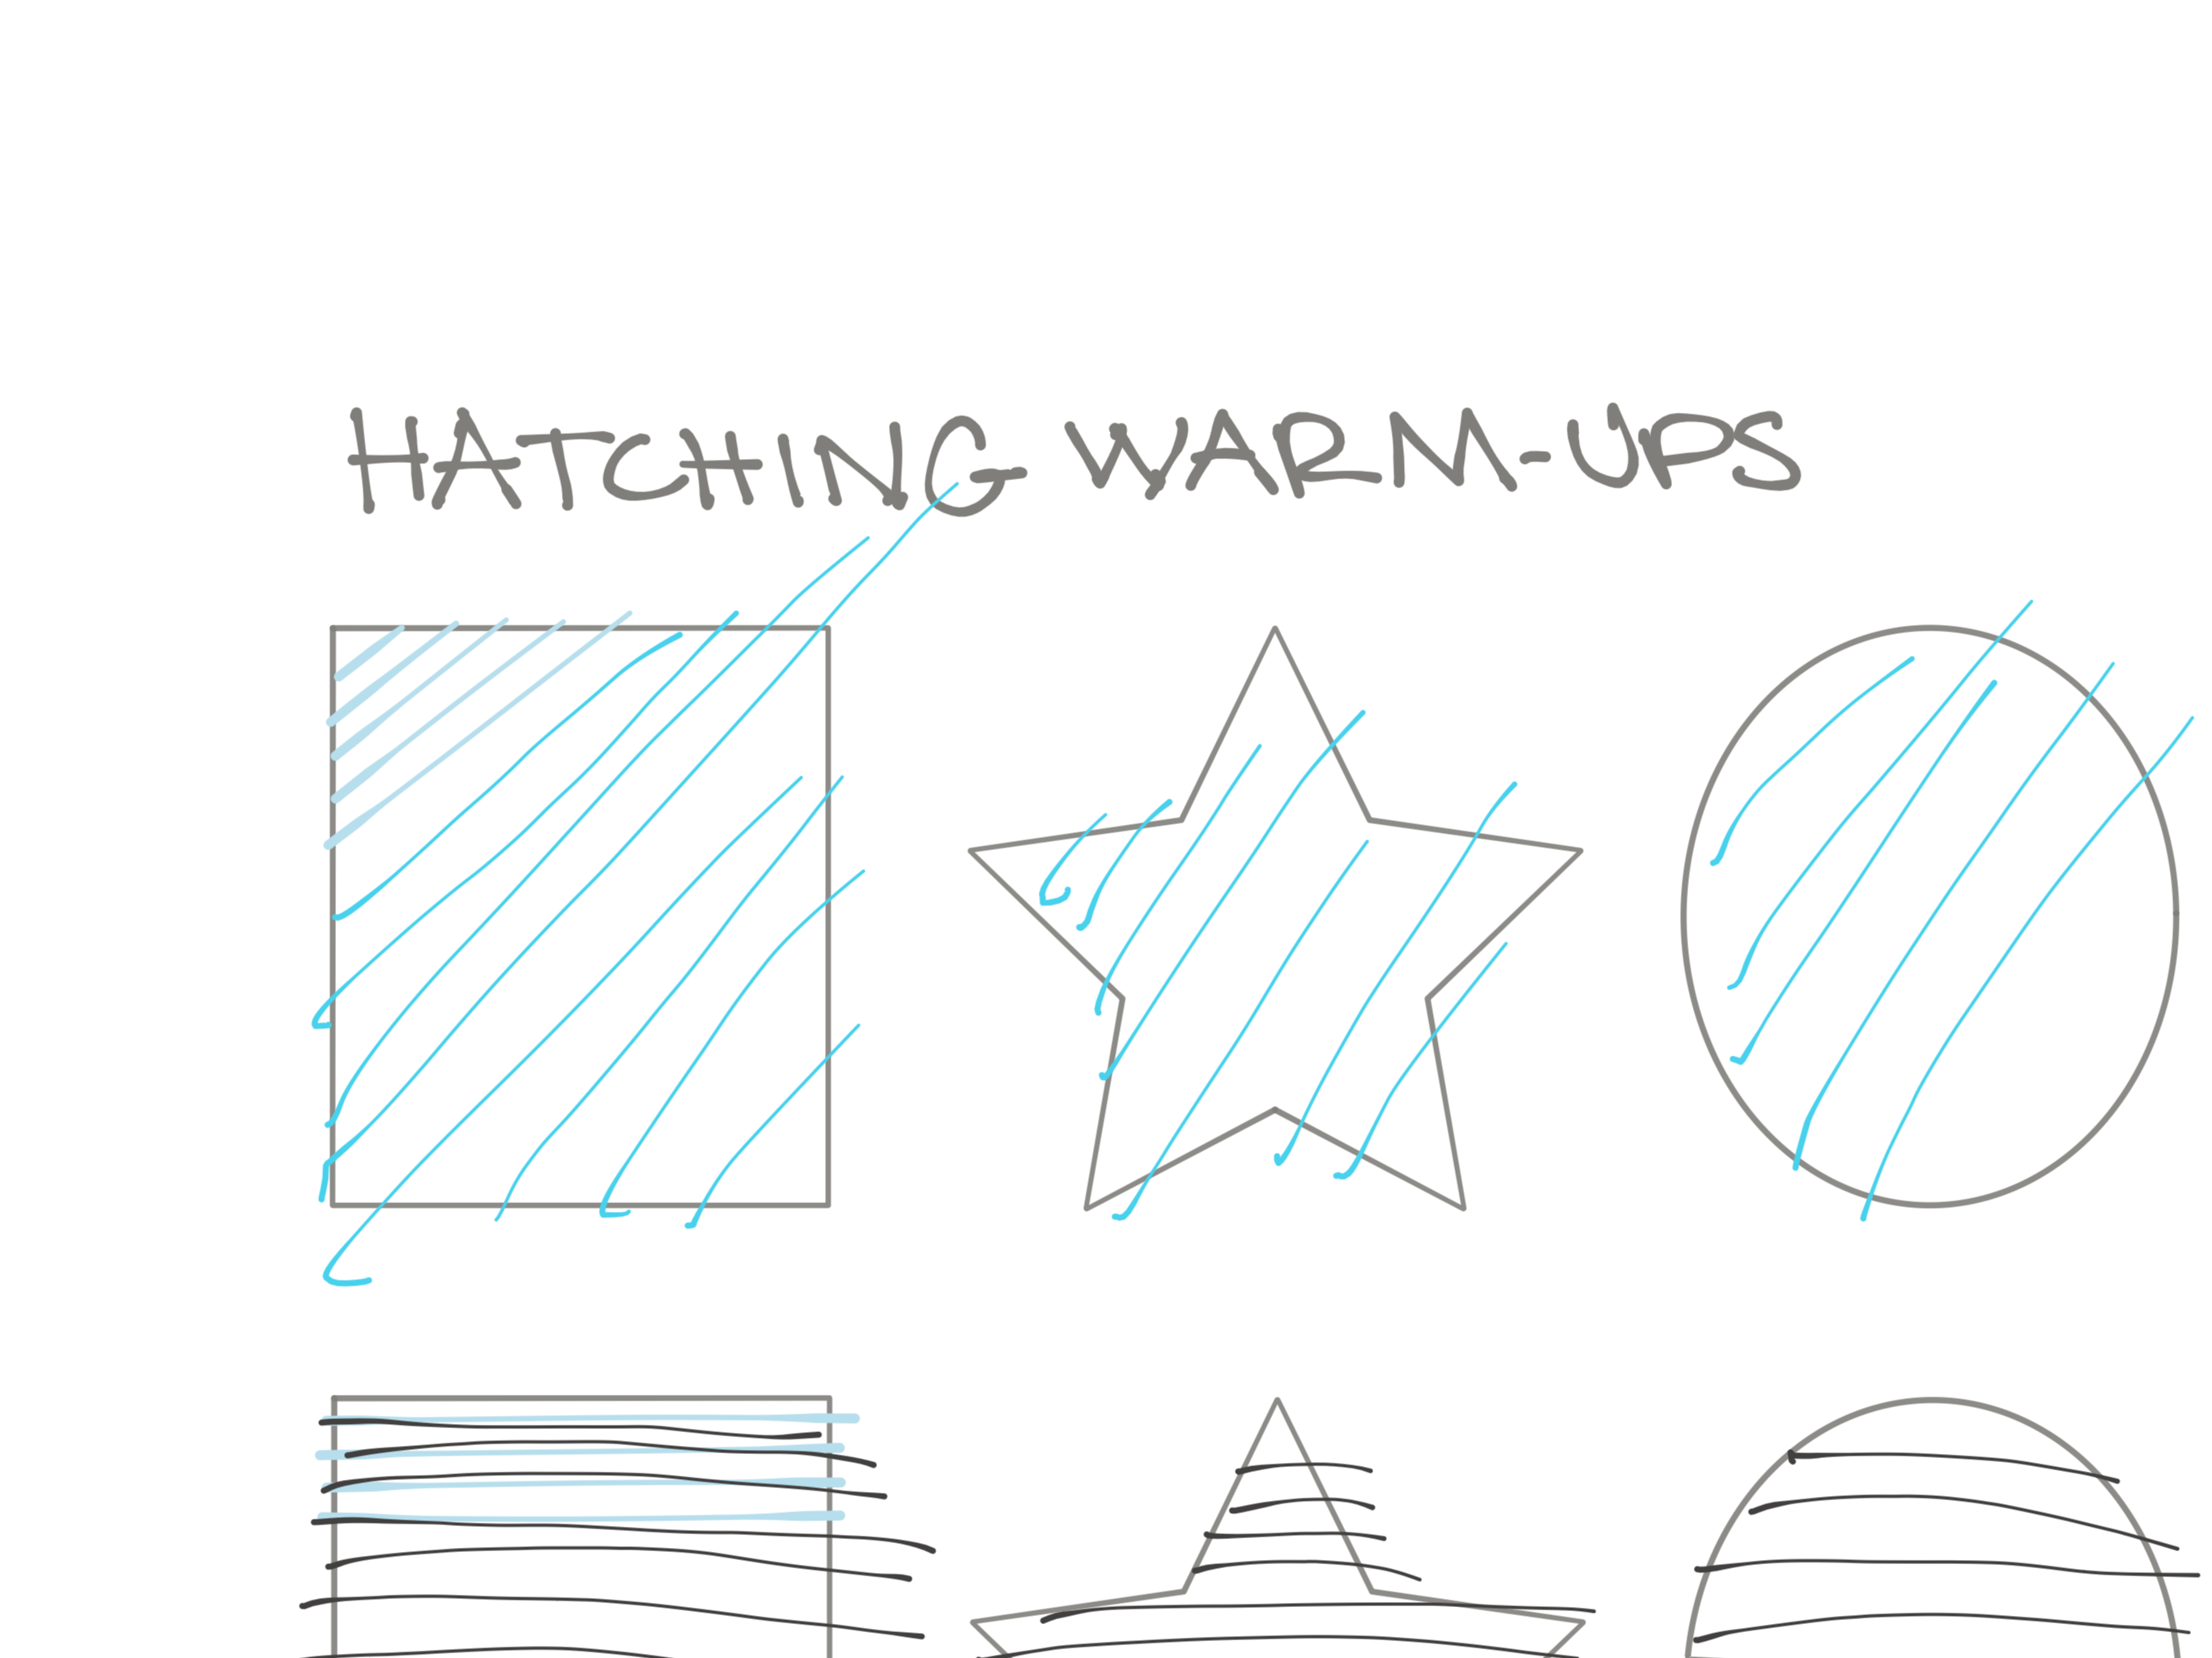 HATCHING WARM-UPS